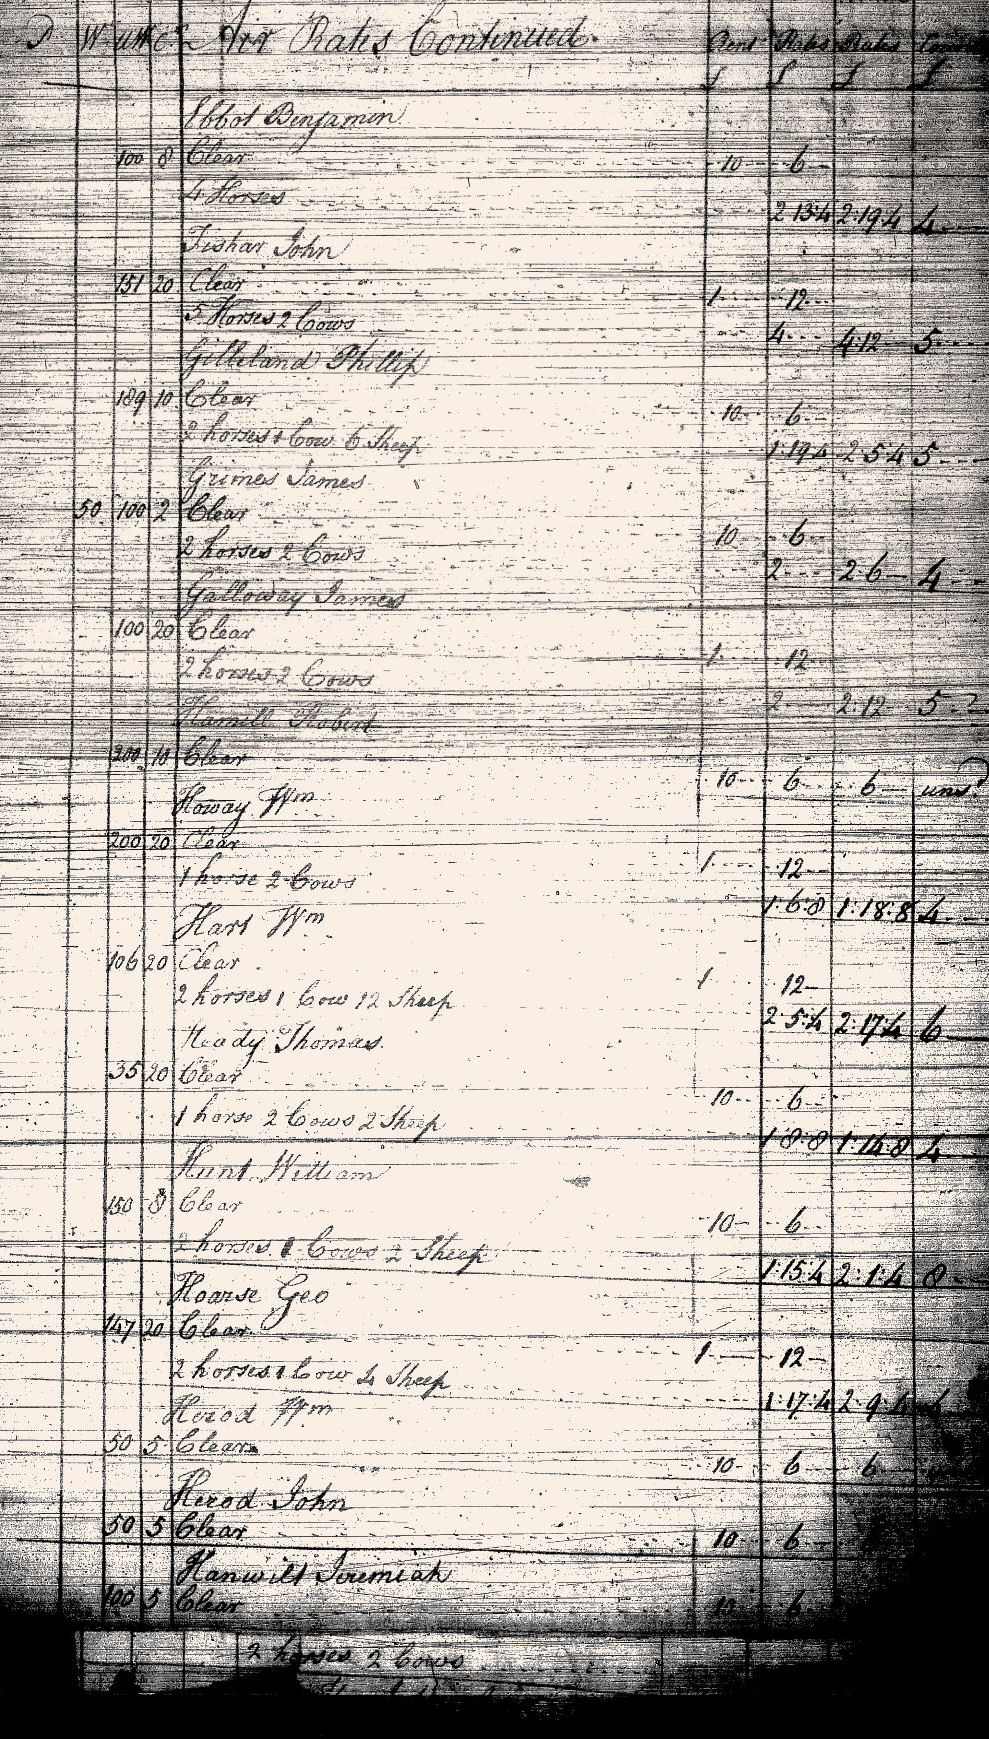 D W unw C Arr Rates Continued. Cent Rates Rates
£ £ £ £
Ebbot Benjamin
100 8 Clear 10 6
4 Horses 2 13:4 2:19:4 4
Fishar John
151 20 Clear 1 12
5 Horses 2 Cows 4 4:12 5
Gilleland Phillip
189 10 Clear 10 6
2 horses 1 Cow 6 Sheep 1:19:4 2 5:4 5
Grimes James
50 100 2 Clear 10 6
2 horses 2 Cows 2 2:6 4
Galloway James
100 20 Clear 1 12
2 horses 2 Cows 2 2:12 5
Hamill Robert
200 10 Clear 10 6 6
Howay Wm
200 20 Clear 1 12
1 horse 2 Cows 1:6:8 1:18:8 4
Hart Wm
106 20 Clear 1 12
2 horses 1 Cow 12 Sheep 2 5:4 2:17:4 6
Heady Thomas
35 20 Clear 10 6
1 horse 2 Cows 2 Sheep 1 8:8 1:14:8 4
Hunt William
150 8 Clear 10 6
2 horses 1 Cows 2 Sheep 1:15:4 2:1:4 8
Hoarse Geo
147 20 Clear 1 12
2 horses 1 Cow 4 Sheep 1:17:4 2:9:4
Herod Wm
50 5 Clear 10 6 6
Herod John
50 5 Clear 10 6
Hanwilt Jeremiah
100 5 Clear 10 6
2 horses 2 Cows